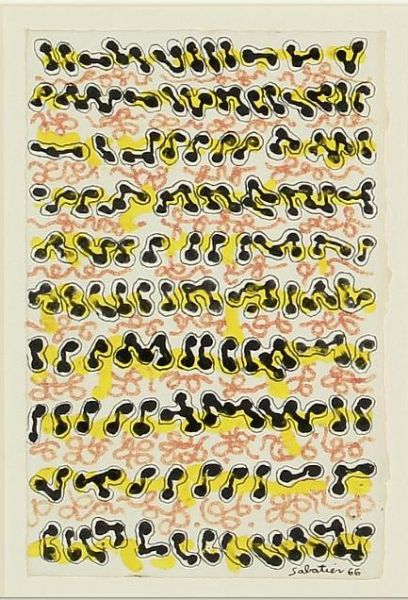 Sabatier 66